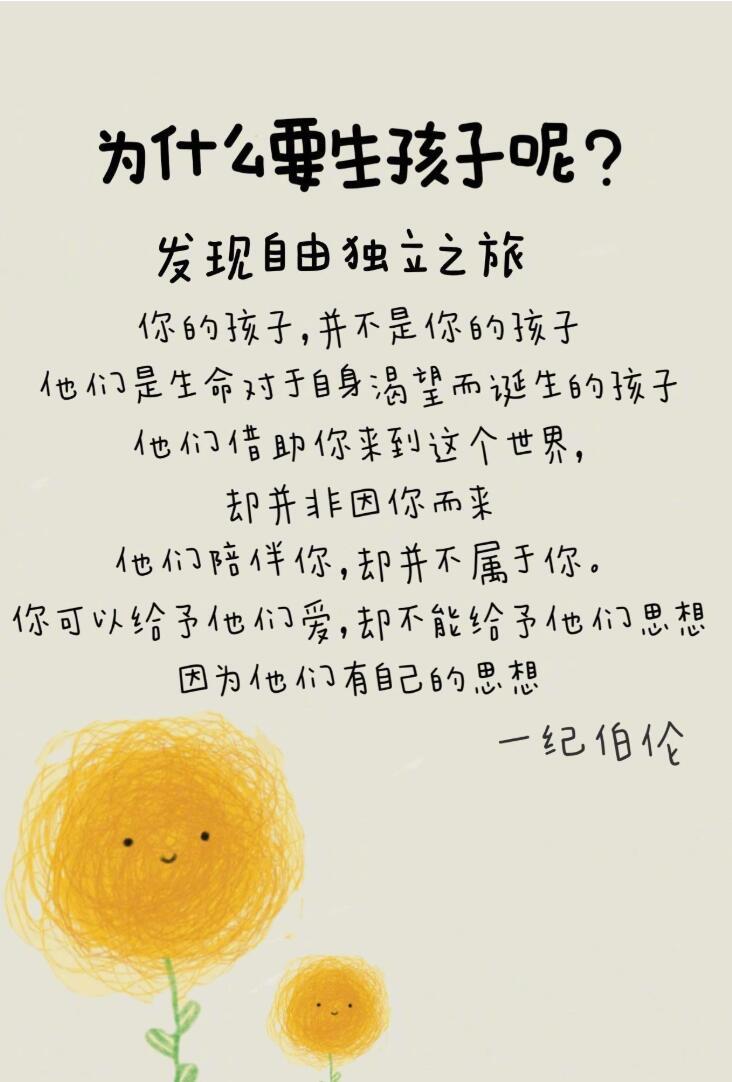 为什么要生孩子呢?
发现自由独立之旅
你的孩子,并不是你的孩子
他们是生命对于自身渴望而诞生的孩子
他们借助你来到这个世界,
却并非因你而来
他们陪伴你,却并不属于你。
你可以给予他们爱,却不能给予他们思想
因为他们有自己的思想
一纪伯伦